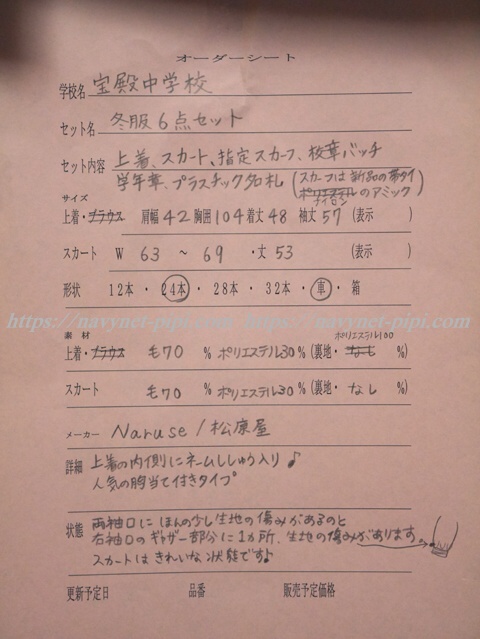 オーダーシート
学校名 宝殿中学校
セット名 冬服6点セット
セット内容 上着、スカート、指定スカーフ、校章バッチ
学年章、プラスチック名札 (スカーフは新品の帯タイ
ポリエステルのアミック)
ナイロン
サイズ
上着・ブラウス 肩幅 42 胸囲 104 着丈 48 袖丈 57 (表示 )
スカート W 63 ～ 69 ・丈 53 (表示 )
形状 12本・24本・28本・32本・車・箱
https://navynet-pipi.com https://navynet-pipi.com
素材 ポリエステル100
上着・ブラウス 毛70 % ポリエステル30 % (裏地・なし %)
スカート 毛70 % ポリエステル30 % (裏地・なし %)
メーカー Naruse / 松原屋
詳細 上着の内側にネームししゅう入り♪
人気の胸当て付きタイプ
状態 両袖口にほんの少し生地の傷みがあるのと
右袖口のギャザー部分に1カ所、生地の傷みがあります
スカートはきれいな状態です♪
更新予定日 品番 販売予定価格